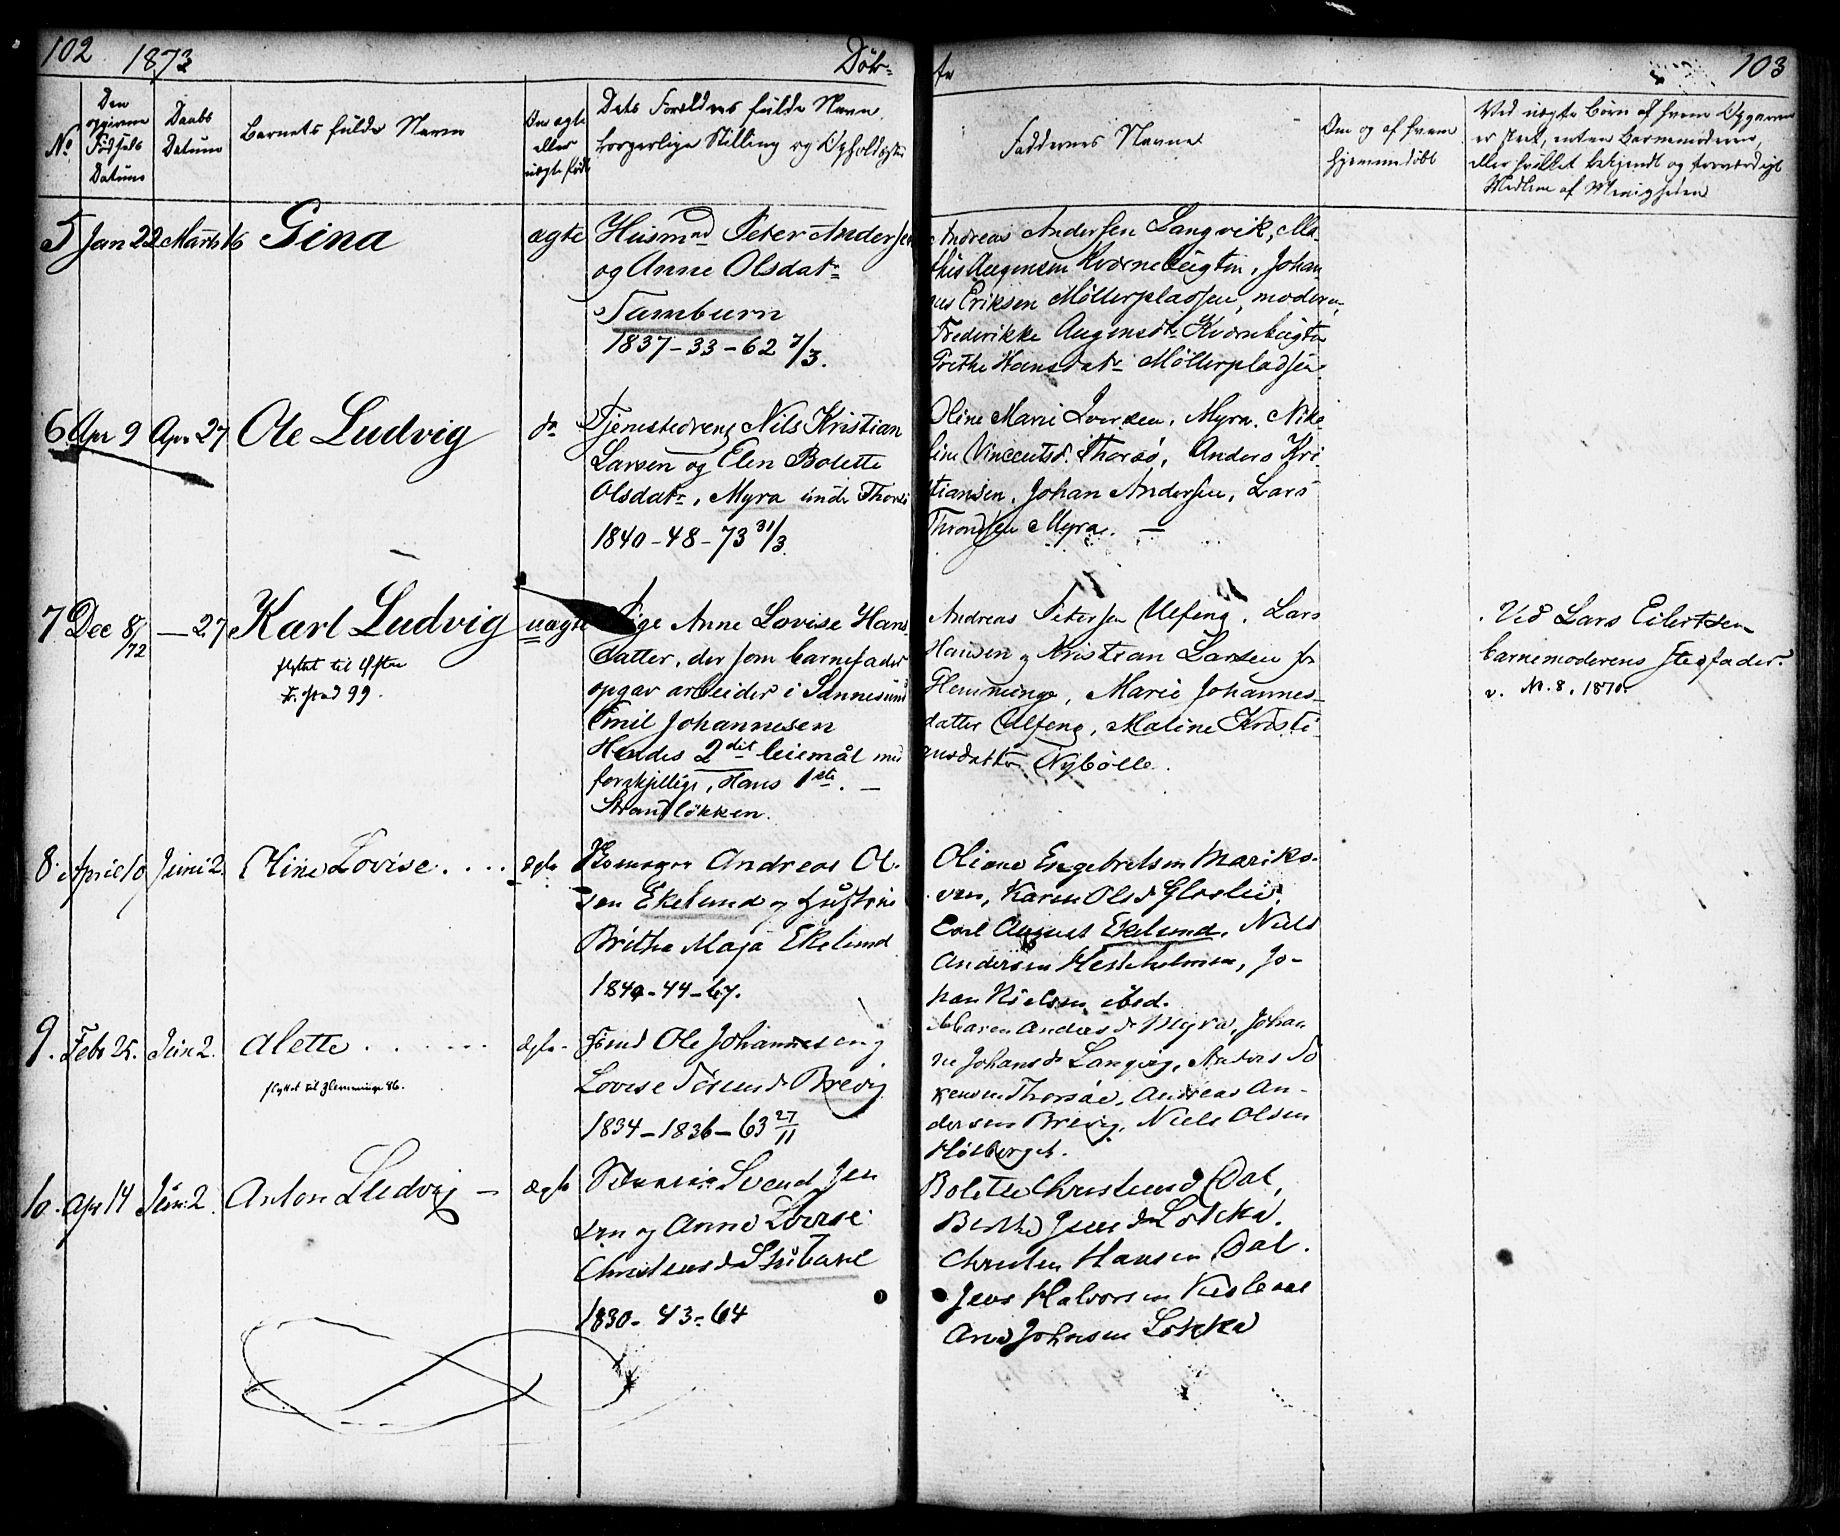 102
1873
Döb=
te
103
No
Den
opgivne
Födsels
Datum
Daabs
Datum
Barnets fulde Navn
Om ægte
eller
uægte født
Dets Forældres fulde Navn
borgerlige Stilling og Opholdssted
Faddernes Navne
Om og af hvem
hjemmedöbt
Ved uægte Børn af hvem Opgaven
er skeet, enten Barnemoderen,
eller hvilket bekjendt og troværdigt
Medlem af Menigheden
5 Jan 22 Marts 16 Gina ægte
Husmnd Peter Andersen
og Anne Olsdatr
Tamburn
1837-33-62 7/3.
Andreas Andersen Langvik, Ma-
this Augensen Kværnebugten, Johan-
nes Eriksen Möllerpladsen, moderen,
Frederikke Augensdr Kværnbugten
Grethe Hansdatr Möllerpladsen.
6 Apr 9 Apr 27 Ole Ludvig do
Tjenestedreng Nils Kristian
Larsen og Elen Bolette
Olsdatr, Myra under Thorsö
1840-48-73 31/3.
Oline Marie Iversen, Myra. Nike-
line Vincentsd. Thorsö, Anders Kri-
stiansen, Johan Andersen, Lars
Throndsen Myra. —
7 Dec 8/72 — 27 Karl Ludvig uægte
flyttet til
99.
Pige Anne Lovise Hans-
datter, der som barnefader
opgav arbeider i Sannesund
Emil Johannesen
Hendes 2det leiermål med
forskjellige, Hans 1ste. —
Strandlökken.
Andreas Petersen Ulfeng. Lars
Hansen og Kristian Larsen fr
Hemminge, Marie Johannes-
datter Ulfeng, Maline Kristi-
ansdatter Nybölle.
Ved Lars Eilertsen
barnemoderens stedfader.
v. No. 8. 1870.
8. April 10 Juni 2. Oline Lovise.... ægte
Andreas Ol-
sen Ekelund og Hustru
Britha Maja Ekelund
1840-44-67.
Oliane Engebretsen
Karen Olsd
Carl August Ekelund, Niels
Andersen Hesteholmen, Jo-
han Nielsen ibid.
9. Febr 25. Jun 2. Alette ...... ægte-
flyttet til Hemminge 86.
Ole Johannesen og
Lovise Brevig
1834-1836-63 27/11
Maren Andersdr Myra, Johan-
ne Johansdr Langvig, Anders To-
Thorsöe, Andreas An-
dersen Brevig, Niels Olsen
Hölberget.
10. Apr 14 Jun. 2. Anton Ludvig — ægte
Svend Jen-
sen og Anne Lovise
Christensdr Stubane
1830-43-64
Bolette Christensd Dal,
Berthe Jensdr Lökka.
Christen Hansen Dal.
Jens Halvorsen
Ane Johnsen Lökka